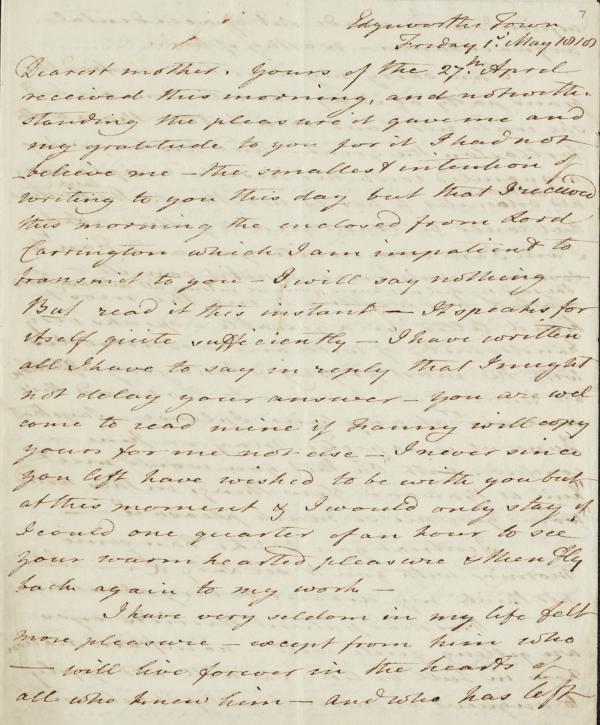 7
Edgeworths Town
Friday 1st. May 1818
Dearest mother. Yours of the 27th. April
received this morning, and notwith-
standing the pleasure it gave me and
my gratitude to you for it I had not
believe me – the smallest intention of
writing to you this day but that I received
this morning the enclosed from Lord
Carrington which I am impatient to
transmit to you – I will say nothing –
But read it this instant – It speaks for
itself quite sufficiently – I have written
all I have to say in reply that I might
not delay your answer – you are wel
come to read mine if Fanny will copy
yours for me not else – I never since
you left have wished to be with you but
at this moment & I would only stay if
I could one quarter of an hour to see
your warm hearted pleasure & then fly
back again to my work –
I have very seldom in my life felt
more pleasure – except from him who
– will live forever in the hearts of
all who knew him – and who has left